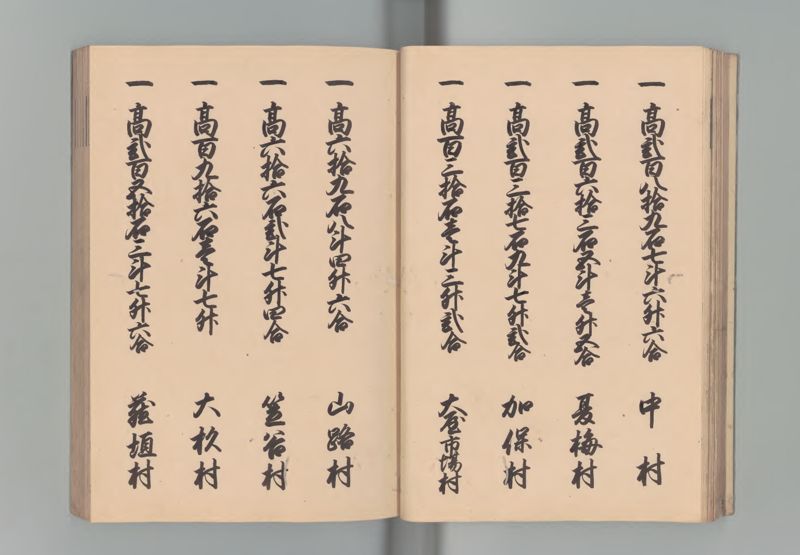 一 高弐百八拾九石七斗六升六合 中村
一 高弐百六拾三石五斗壱升五合 夏梅村
一 高弐百三拾七石九斗七升弐合 加保村
一 高百三拾石壱斗三升弐合 大屋市場村
一 高六拾九石八斗四升六合 山路村
一 高六拾六石弐斗七升四合 笠谷村
一 高百九拾六石壱斗七升 大杉村
一 高弐百五拾石三斗七升六合 蔵垣村